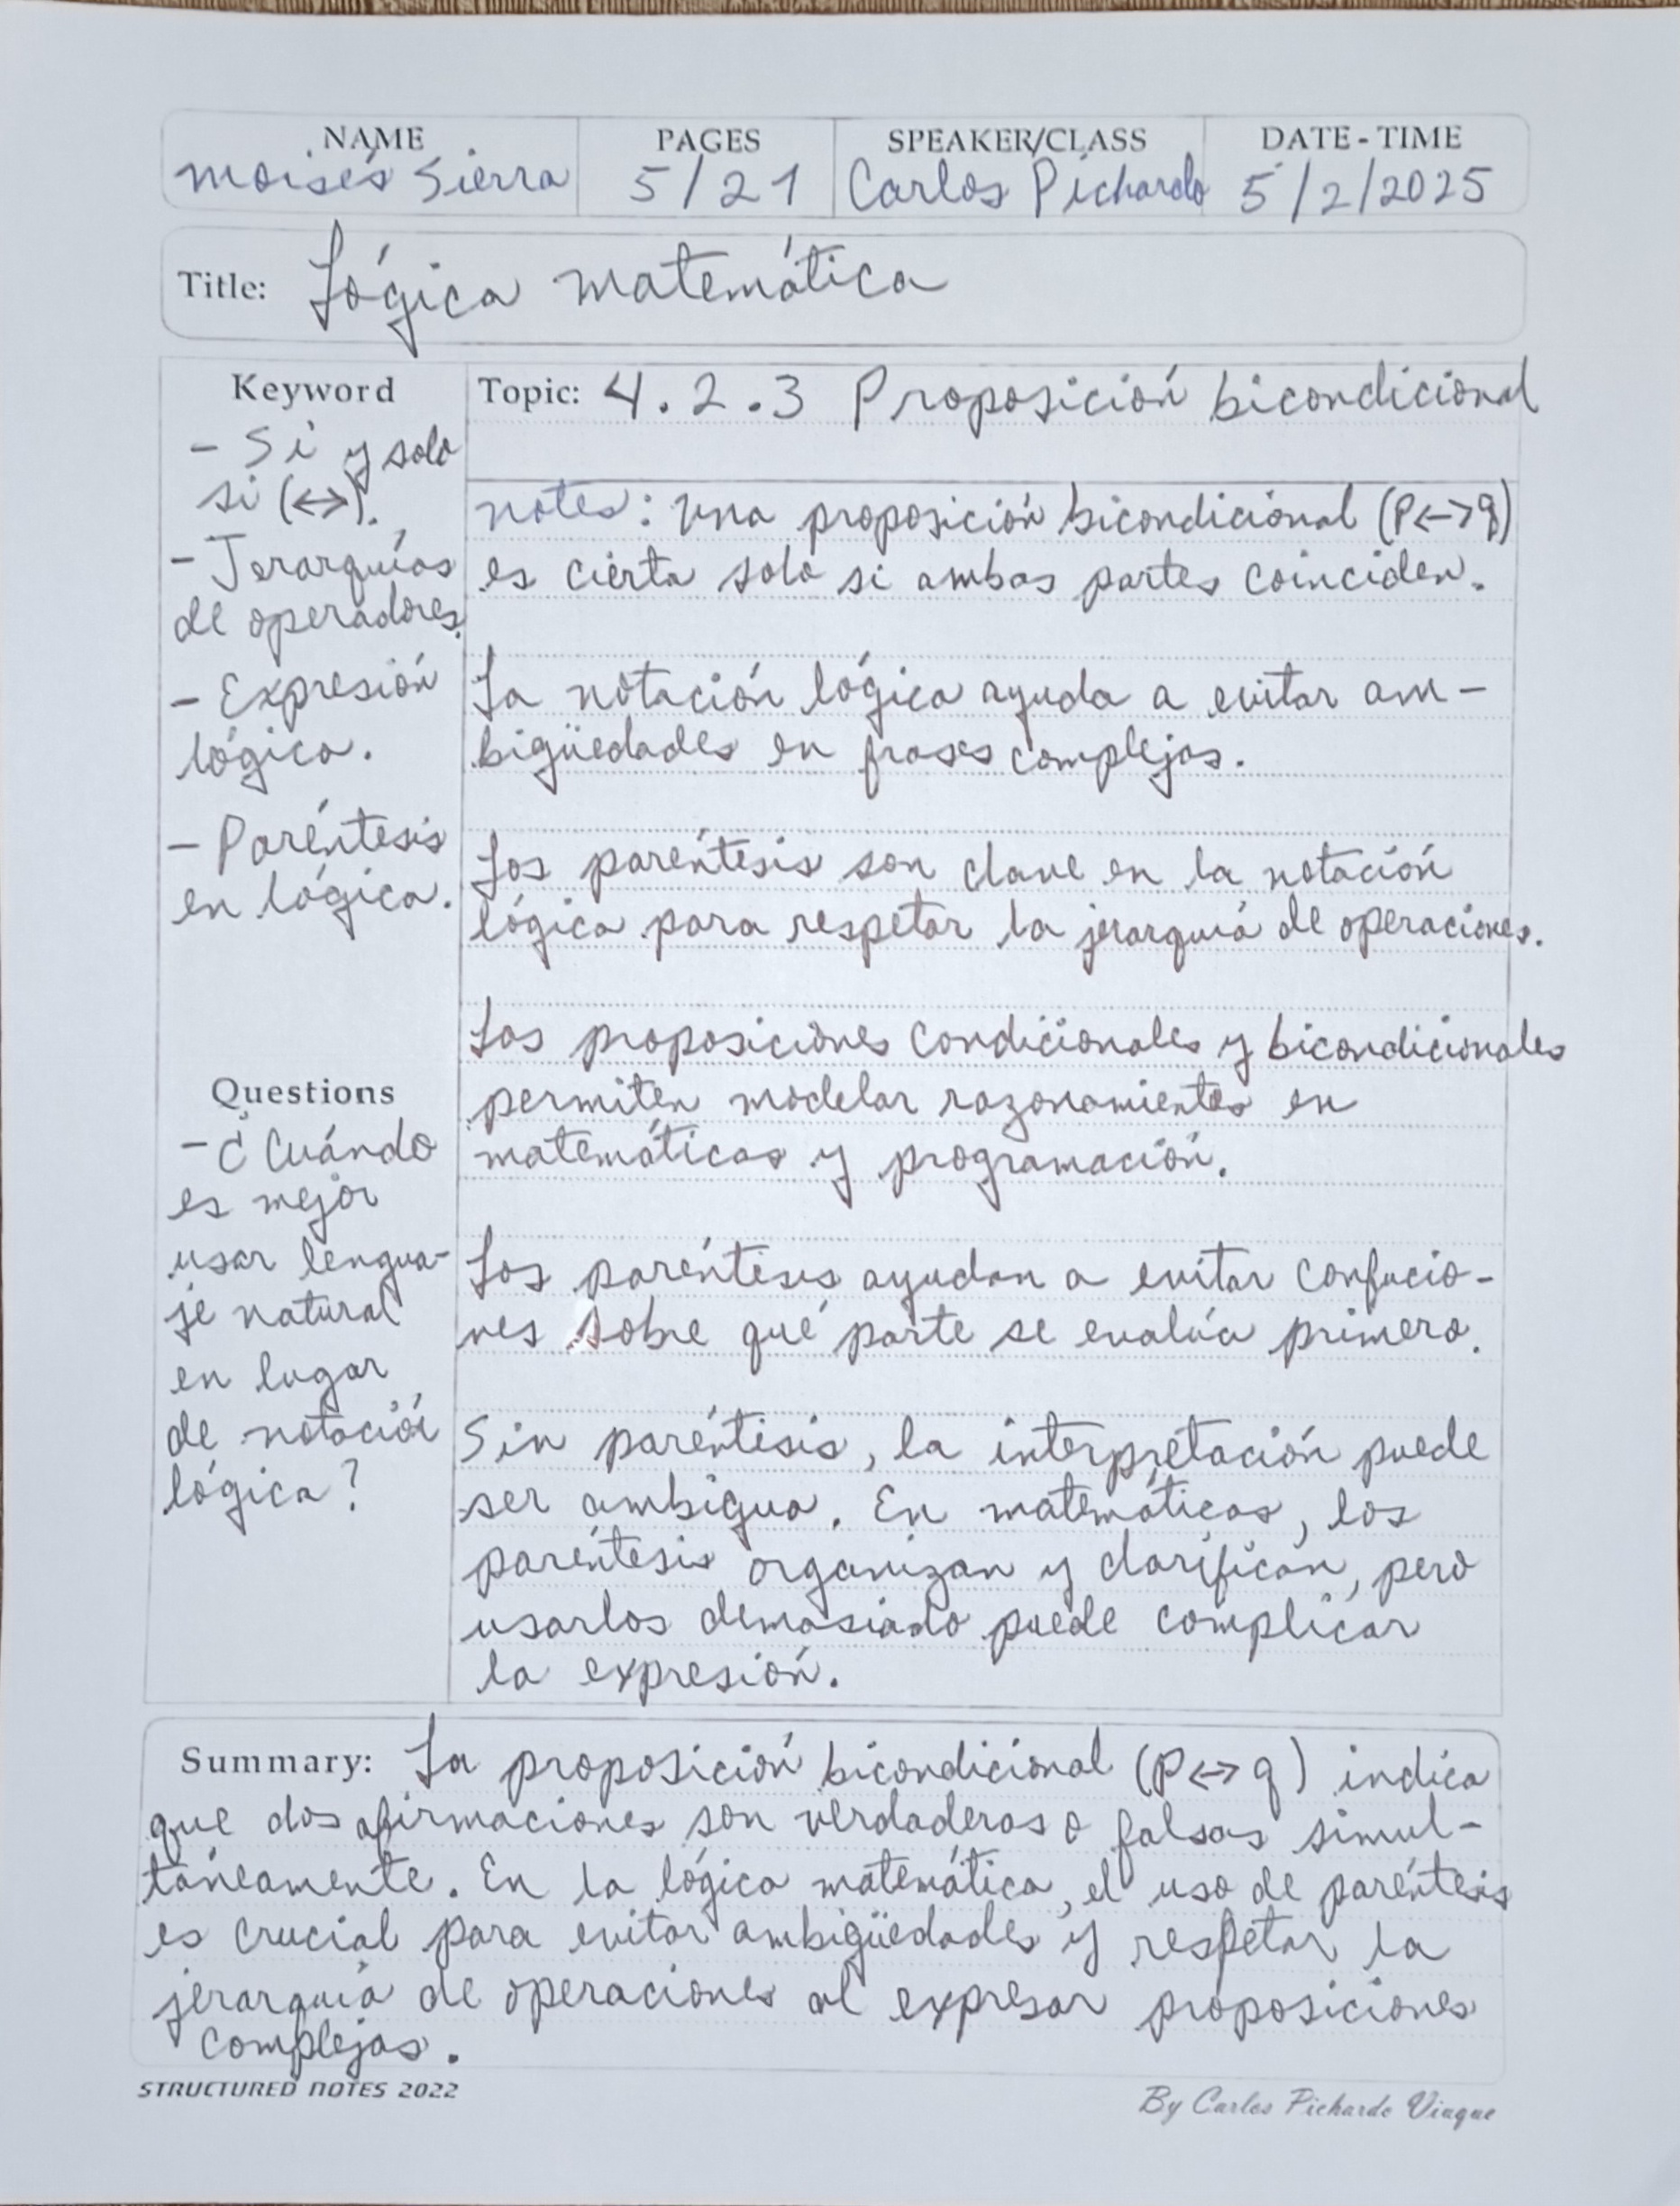 NAME PAGES SPEAKER/CLASS DATE-TIME
Moisés Sierra 5/21 Carlos Pichardo 5/2/2025
Title: Lógica matemática
Keyword
- Si y solo
si (↔).
- Jerarquías
de operadores.
- Expresión
lógica.
- Paréntesis
en lógica.
Questions
- ¿Cuándo
es mejor
usar lengua-
je natural
en lugar
de notación
lógica?
Topic: 4.2.3 Proposición bicondicional
notes: Una proposición bicondicional (P↔q)
es cierta solo si ambas partes coinciden.
La notación lógica ayuda a evitar am-
bigüedades en frases complejas.
Los paréntesis son clave en la notación
lógica para respetar la jerarquía de operaciones.
Las proposiciones condicionales y bicondicionales
permiten modelar razonamientos en
matemáticas y programación.
Los paréntesis ayudan a evitar confucio-
nes sobre qué parte se evalúa primero.
Sin paréntisis, la interpretación puede
ser ambigua. En matemáticas, los
paréntesis organizan y clarifican, pero
usarlos demasiado puede complicar
la expresión.
Summary: La proposición bicondicional (P↔q) indica
que dos afirmaciones son verdaderas o falsas simul-
táneamente. En la lógica matemática, el uso de paréntesis
es crucial para evitar ambigüedades y respetar la
jerarquía de operaciones al expresar proposiciones
complejas.
STRUCTURED NOTES 2022
By Carlos Pichardo Viuque